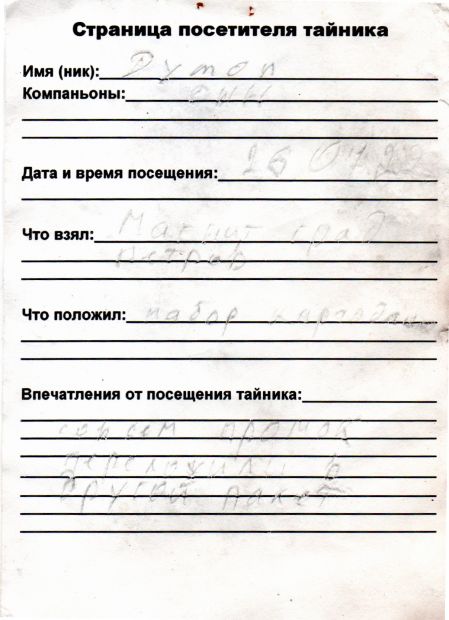 Страница посетителя тайника
Имя (ник):
Компаньоны: сын
Дата и время посещения: 26 07 22
Что взял: Магнит град
Петров
Что положил: набор
Впечатления от посещения тайника:
совсем промок
переложили в
другой пакет